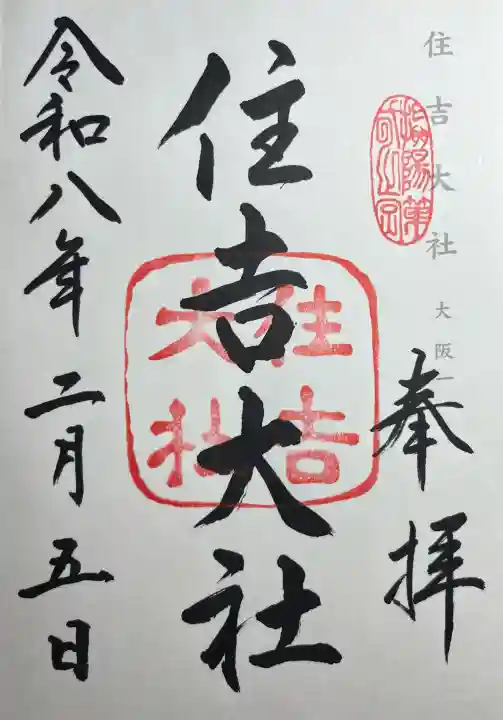 住吉大社 大阪
奉拝
住吉大社
住吉
大社
令和八年二月五日